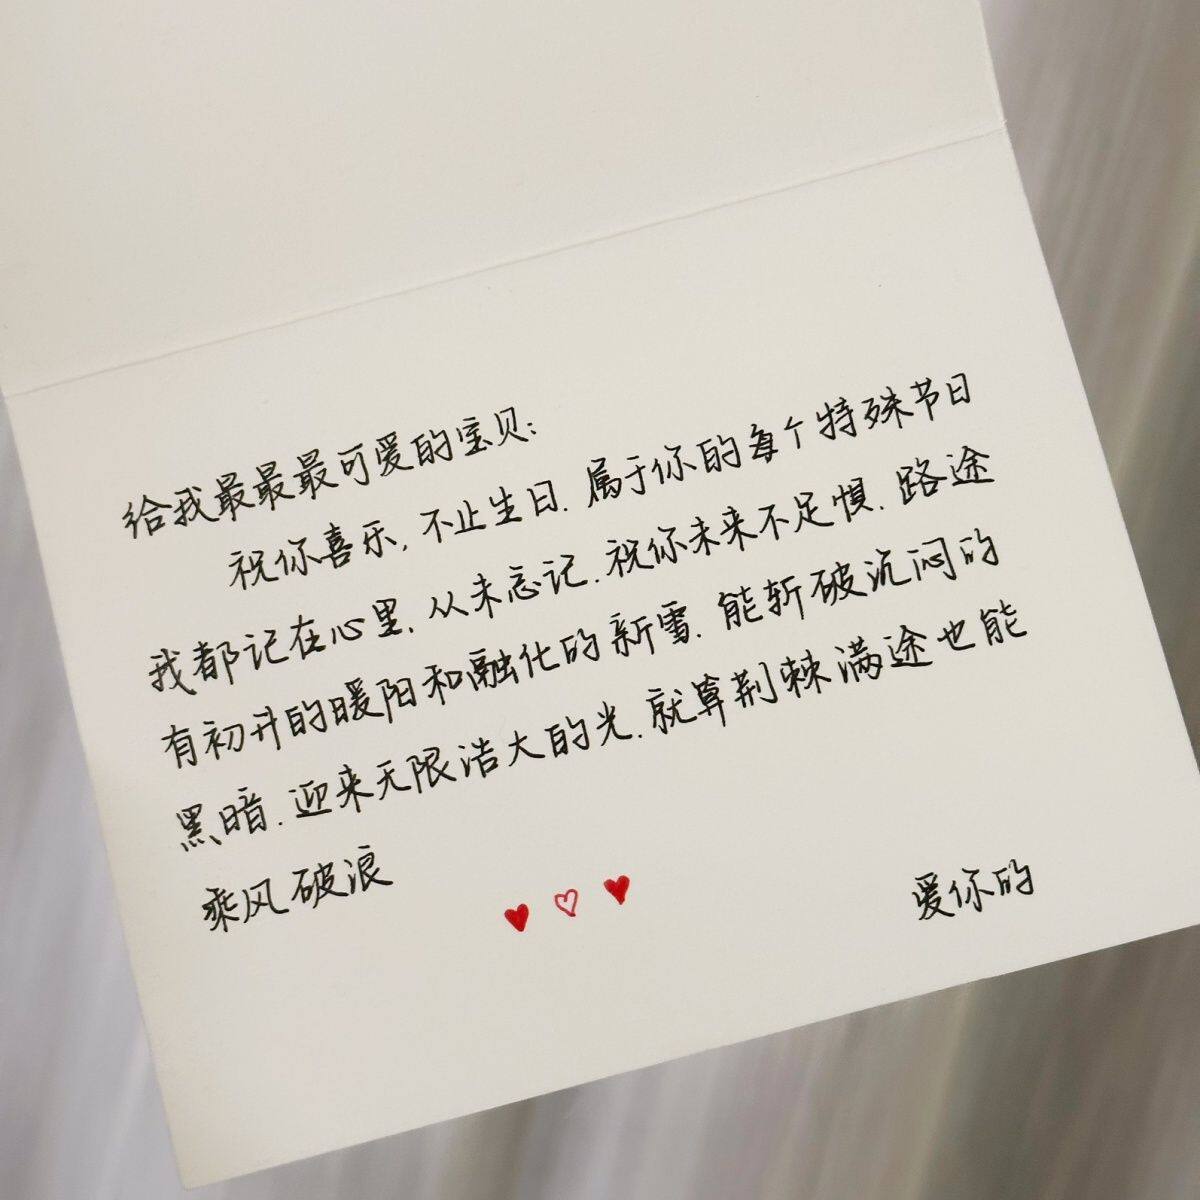 给我最最最可爱的宝贝:
祝你喜乐,不止生日.属于你的每个特殊节日
我都记在心里,从未忘记.祝你未来不足惧.路途
有初升的暖阳和融化的新雪.能斩破沉闷的
黑暗.迎来无限浩大的光.就算荆棘满途也能
乘风破浪
爱你的